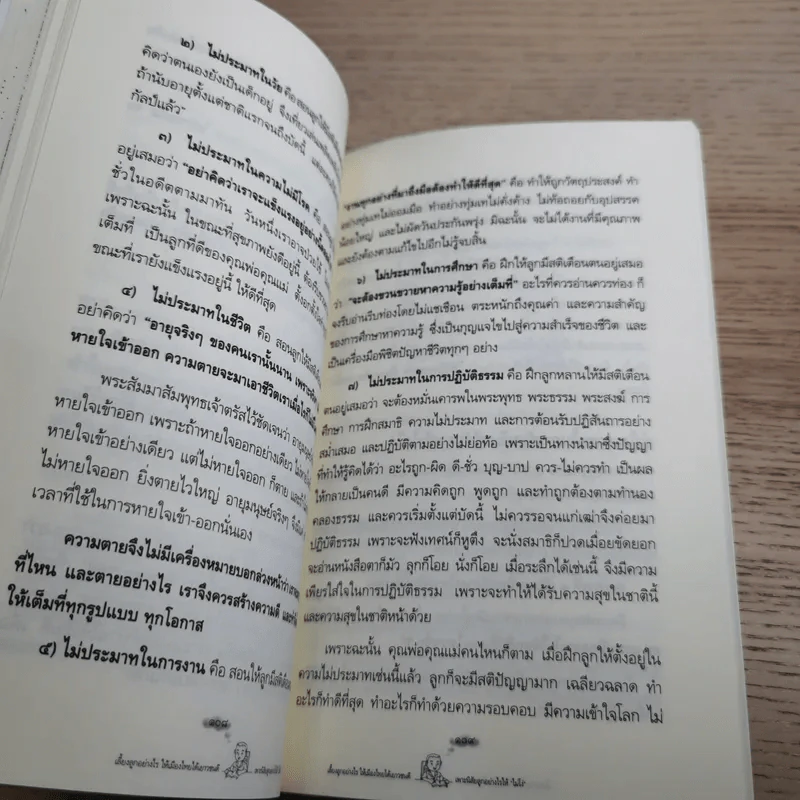 ๒) ไม่ประมาทในวัย คือ สอนลูกให้
คิดว่าตนเองยังเป็นเด็กอยู่ จึงเที่ยวเล่น
ถ้านับอายุตั้งแต่ชาติแรกจนถึงบัดนี้
กัลป์แล้ว"
๓) ไม่ประมาทในความไม่มีโรค คือ
อยู่เสมอว่า "อย่าคิดว่าเราจะแข็งแรงอยู่อย่างนี้
ชั่วในอดีตตามมาทัน วันหนึ่งเราอาจป่วยไข้
เพราะฉะนั้น ในขณะที่สุขภาพยังดีอยู่นี้
เต็มที่ เป็นลูกที่ดีของคุณพ่อคุณแม่ ตั้งอก
ขณะที่เรายังแข็งแรงอยู่นี้ ให้ดีที่สุด
๔) ไม่ประมาทในชีวิต คือ สอนลูกให้
อย่าคิดว่า "อายุจริงๆ ของคนเรานั้นนาน เพราะ
หายใจเข้าออก ความตายจะมาเอาชีวิตเราเมื่อไร
พระสัมมาสัมพุทธเจ้าตรัสไว้ชัดเจนว่า อายุ
หายใจเข้าออก เพราะถ้าหายใจออกอย่างเดียว
หายใจเข้าอย่างเดียว แต่ไม่หายใจออก ก็ตาย
ไม่หายใจออก ยิ่งตายไวใหญ่ อายุมนุษย์จริงๆ
เวลาที่ใช้ในการหายใจเข้า-ออกนั่นเอง
ความตายจึงไม่มีเครื่องหมายบอกล่วงหน้าว่า
ที่ไหน และตายอย่างไร เราจึงควรสร้างความดี
ให้เต็มที่ทุกรูปแบบ ทุกโอกาส
๕) ไม่ประมาทในการงาน คือ สอนให้ลูกมีสติเตือน
๑๐๘
เลี้ยงลูกอย่างไร ให้เมืองไทยได้เยาวชนดี
"งานทุกอย่างที่มาถึงมือต้องทำให้ดีที่สุด" คือ ทำให้ถูกวัตถุประสงค์ ทำ
อย่างทุ่มเทไม่ออมมือ ทำอย่างทุ่มเทไม่คั่งค้าง ไม่ท้อถอยกับอุปสรรค
น้อยใหญ่ และไม่ผัดวันประกันพรุ่ง มิฉะนั้น จะไม่ได้งานที่มีคุณภาพ
และยังต้องตามแก้ไขไปอีกไม่รู้จบสิ้น
๖) ไม่ประมาทในการศึกษา คือ ฝึกให้ลูกมีสติเตือนตนอยู่เสมอ
ว่า "จะต้องขวนขวายหาความรู้อย่างเต็มที่" อะไรที่ควรอ่านควรท่อง ก็
จงรีบอ่านรีบท่องโดยไม่แชเชือน ตระหนักถึงคุณค่า และความสำคัญ
ของการศึกษาหาความรู้ ซึ่งเป็นกุญแจไขไปสู่ความสำเร็จของชีวิต และ
เป็นเครื่องมือพิชิตปัญหาชีวิตทุกๆ อย่าง
๗) ไม่ประมาทในการปฏิบัติธรรม คือ ฝึกลูกหลานให้มีสติเตือน
ตนอยู่เสมอว่า จะต้องหมั่นเคารพในพระพุทธ พระธรรม พระสงฆ์ การ
ศึกษา การฝึกสมาธิ ความไม่ประมาท และการต้อนรับปฏิสันถารอย่าง
สม่ำเสมอ และปฏิบัติตามอย่างไม่ย่อท้อ เพราะเป็นทางนำมาซึ่งปัญญา
ที่ทำให้รู้คิดได้ว่า อะไรถูก-ผิด ดี-ชั่ว บุญ-บาป ควร-ไม่ควรทำ เป็นผล
ให้กลายเป็นคนดี มีความคิดถูก พูดถูก และทำถูกต้องตามทำนอง
คลองธรรม และควรเริ่มตั้งแต่บัดนี้ ไม่ควรรอจนแก่เฒ่าจึงค่อยมา
ปฏิบัติธรรม เพราะจะฟังเทศน์ก็หูตึง จะนั่งสมาธิก็ปวดเมื่อยขัดยอก
จะอ่านหนังสือตาก็มัว ลุกก็โอย นั่งก็โอย เมื่อระลึกได้เช่นนี้ จึงมีความ
เพียรใส่ใจในการปฏิบัติธรรม เพราะจะทำให้ได้รับความสุขในชาตินี้
และความสุขในชาติหน้าด้วย
เพราะฉะนั้น คุณพ่อคุณแม่คนไหนก็ตาม เมื่อฝึกลูกให้ตั้งอยู่ใน
ความไม่ประมาทเช่นนี้แล้ว ลูกก็จะมีสติปัญญามาก เฉลียวฉลาด ทำ
อะไรก็ทำดีที่สุด ทำอะไรก็ทำด้วยความรอบคอบ มีความเข้าใจโลก ไม่
๑๐๙
เลี้ยงลูกอย่างไร ให้เมืองไทยได้เยาวชนดี
เพาะนิสัยลูกอย่างไรให้ "ไม่โง่"